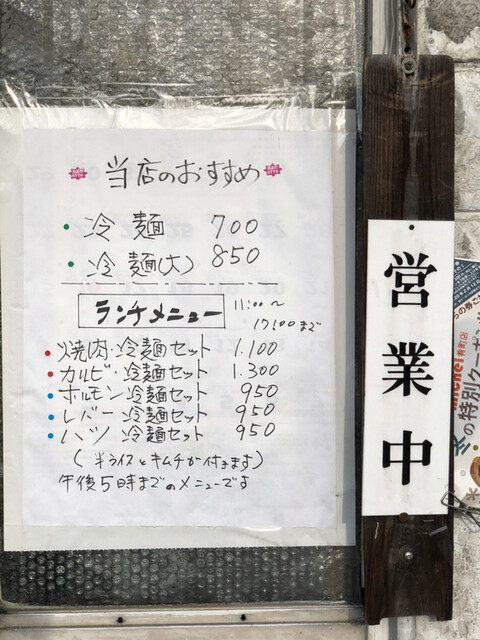 当店のおすすめ
・冷麺 700
・冷麺(大) 850
ランチメニュー 11:00〜
17:00まで
・焼肉・冷麺セット 1.100
・カルビ・冷麺セット 1.300
・ホルモン冷麺セット 950
・レバー冷麺セット 950
・ハツ 冷麺セット 950
(半ライスとキムチが付きます)
午後5時までのメニューです
営業中
の特別クーポン